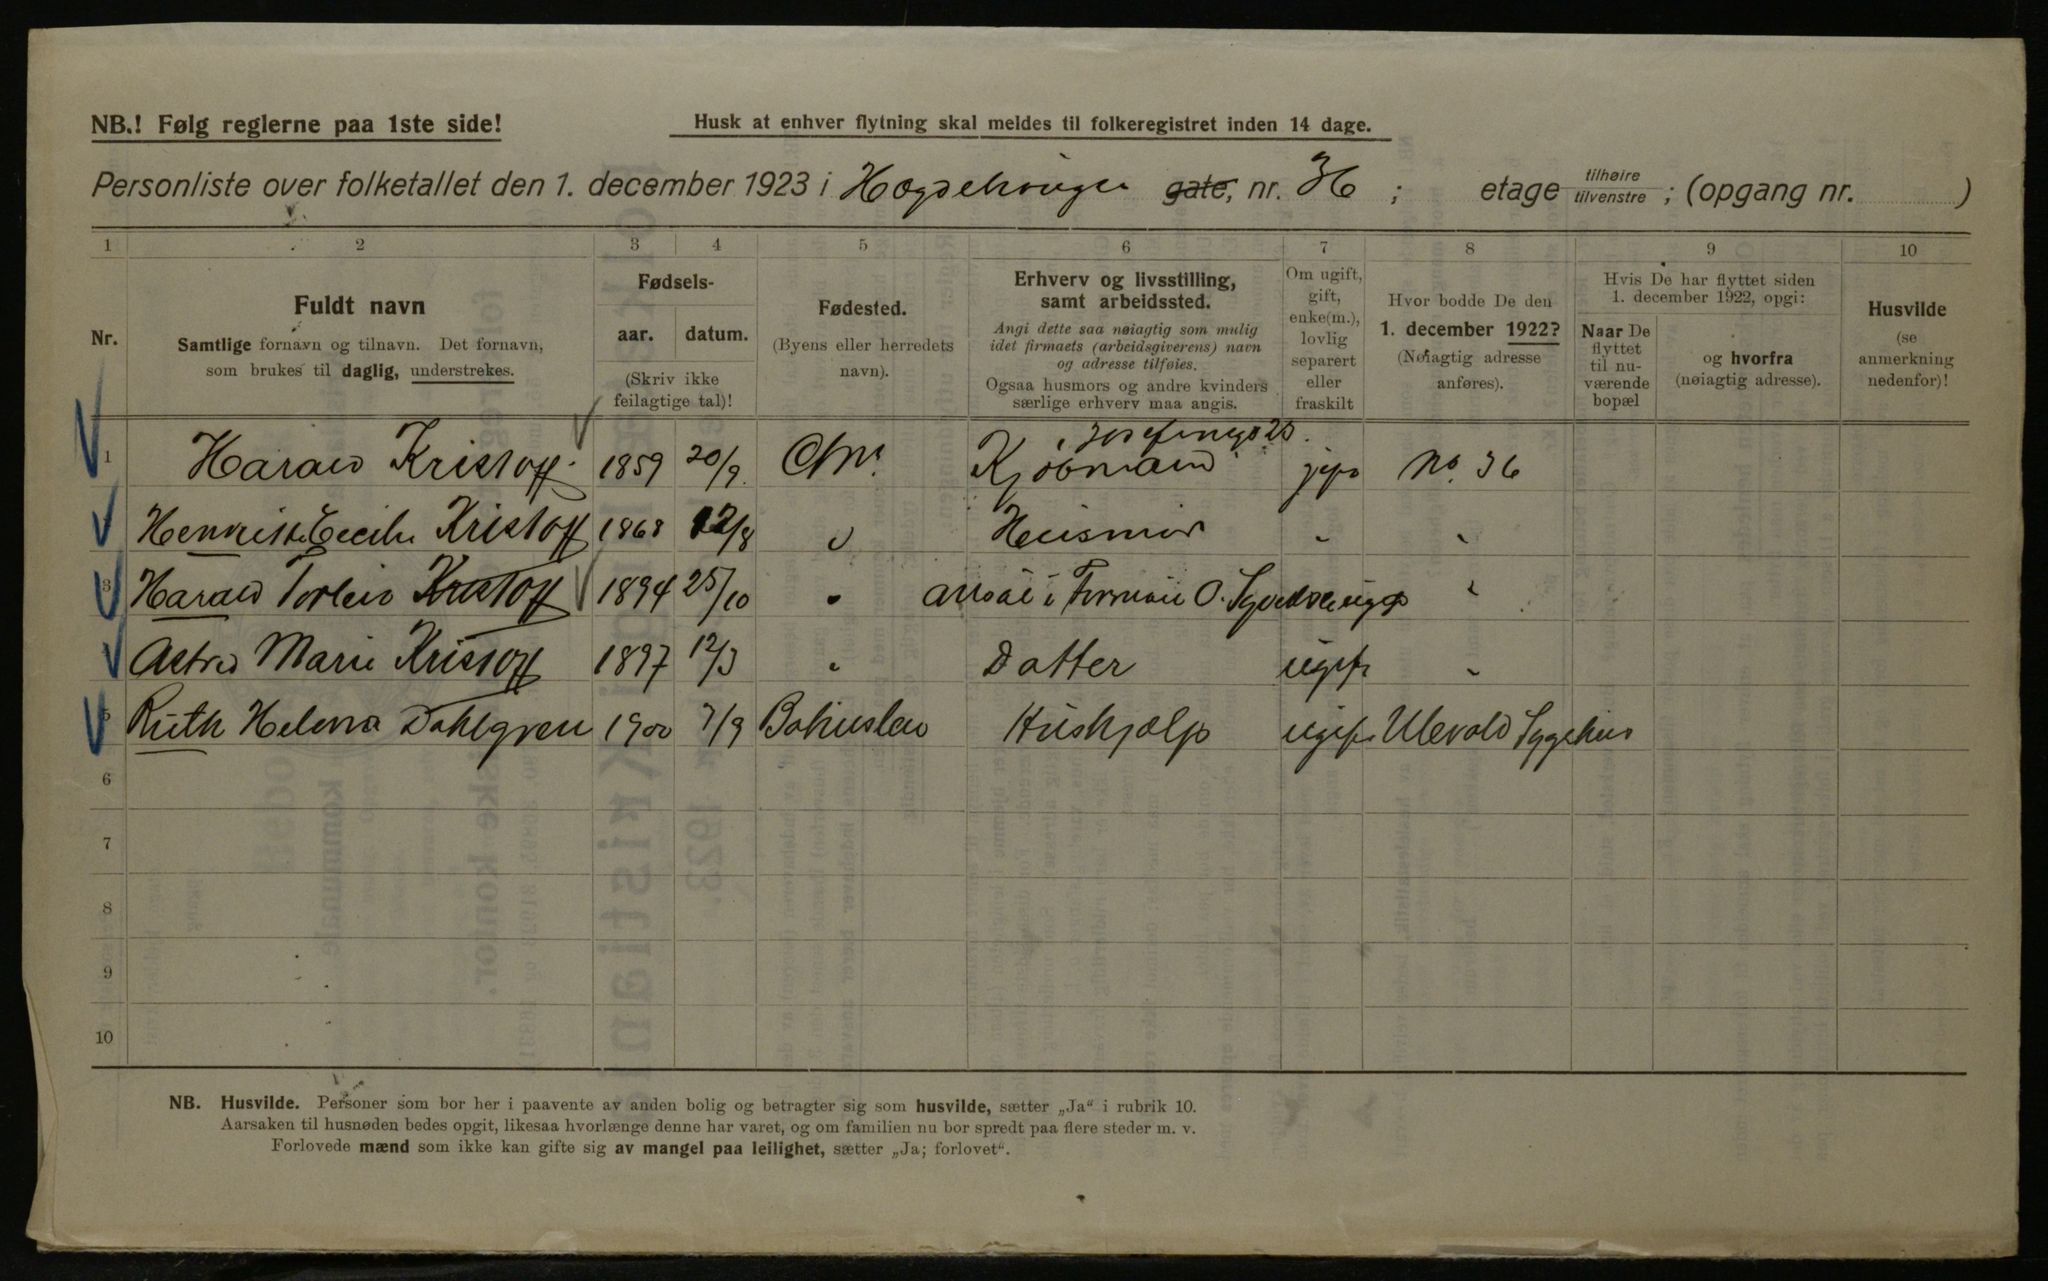 NB.! Følg reglerne paa 1ste side!
Husk at enhver flytning skal meldes til folkeregistret inden 14 dage.
Personliste over folketallet den 1. december 1923 i Hægdehaugen gate, nr. 36 ; etage tilhøire tilvenstre ; (opgang nr. )
1 2 3 4 5 6 7 8 9 10
Nr.
Fuldt navn
Samtlige fornavn og tilnavn. Det fornavn,
som brukes til daglig, understrekes.
Fødsels-
aar. datum.
(Skriv ikke
feilagtige tal)!
Fødested.
(Byens eller herredets
navn).
Erhverv og livsstilling,
samt arbeidssted.
Angi dette saa nøiagtig som mulig
idet firmaets (arbeidsgiverens) navn
og adresse tilføies.
Ogsaa husmors og andre kvinders
særlige erhverv maa angis.
Om ugift,
gift,
enke(m.),
lovlig
separert
eller
fraskilt
Hvor bodde De den
1. december 1922?
(Nøiagtig adresse
anføres).
Hvis De har flyttet siden
1. december 1922, opgi:
Naar De
flyttet
til nu-
værende
bopæl
og hvorfra
(nøiagtig adresse).
Husvilde
(se
anmerkning
nedenfor)!
1 Harald Kristoff 1859 20/9. Chr. Kjøbmand i Josefinegs 25. gift No. 36
Henriette Cecilie Kristoff 1868 12/8 " Husmor " "
3 Harald Torleiv Kristoff 1894 25/10 " O. ugift "
Astrid Marie Kristoff 1897 12/3 " Datter ugift "
5 Ruth Helena Dahlgren 1900 7/9 Bohuslen Hushjælp ugift Ulevold Sygehus
6
7
8
9
10
NB. Husvilde. Personer som bor her i paavente av anden bolig og betragter sig som husvilde, sætter „Ja“ i rubrik 10.
Aarsaken til husnøden bedes opgit, likesaa hvorlænge denne har varet, og om familien nu bor spredt paa flere steder m. v.
Forlovede mænd som ikke kan gifte sig av mangel paa leilighet, sætter „Ja; forlovet“.